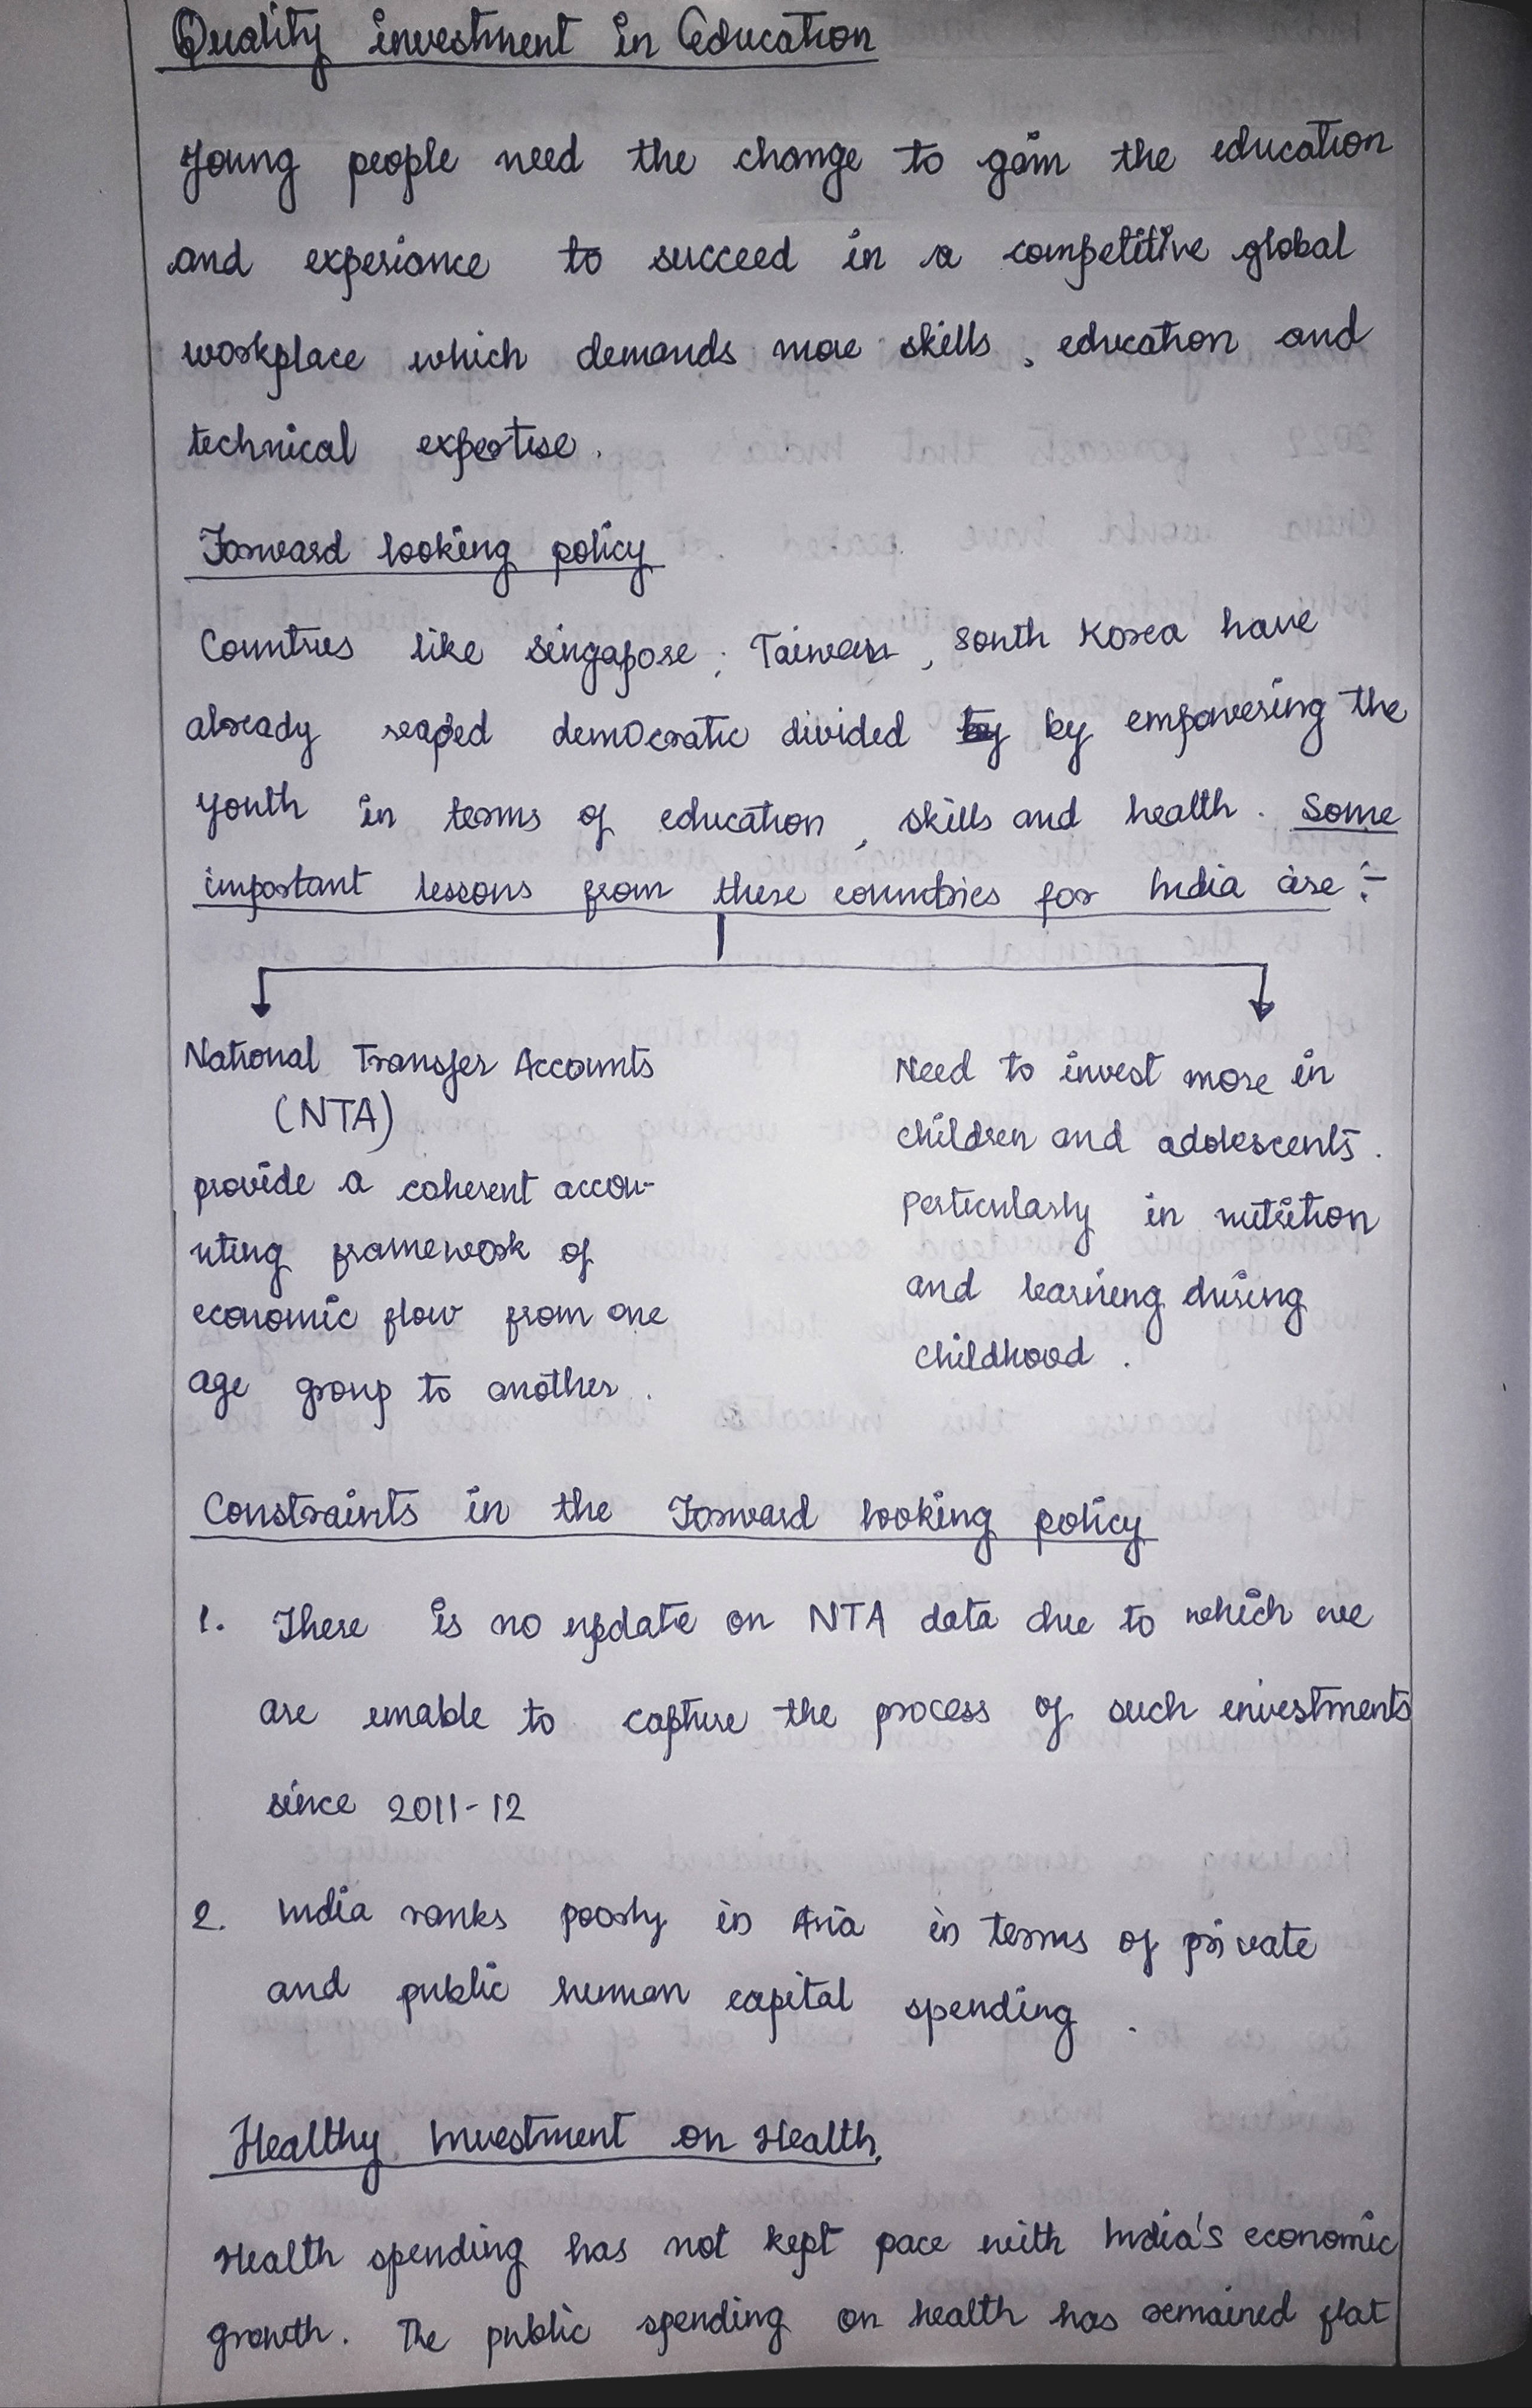 Quality investment in Education
Young people need the change to gain the education
and experiance to succeed in a competitive global
workplace which demands more skills, education and
technical expertise.
Forward looking policy
Countries like Singapore, Taiwan, South Korea have
already reaped democratic divided by by empowering the
youth in terms of education, skills and health. Some
important lessons from these countries for India are :-
National Transfer Accounts
(NTA)
provide a coherent accou-
nting framework of
economic flow from one
age group to another.
Need to invest more in
children and adolescents.
Perticularly in nutrition
and learning during
childhood.
Constraints in the Forward looking policy
1. There is no update on NTA data due to which we
are unable to capture the process of such investments
since 2011-12
2. India ranks poorly in Asia in terms of private
and public human capital spending.
Healthy Investment on Health.
Health spending has not kept pace with India's economic
growth. The public spending on health has remained flat